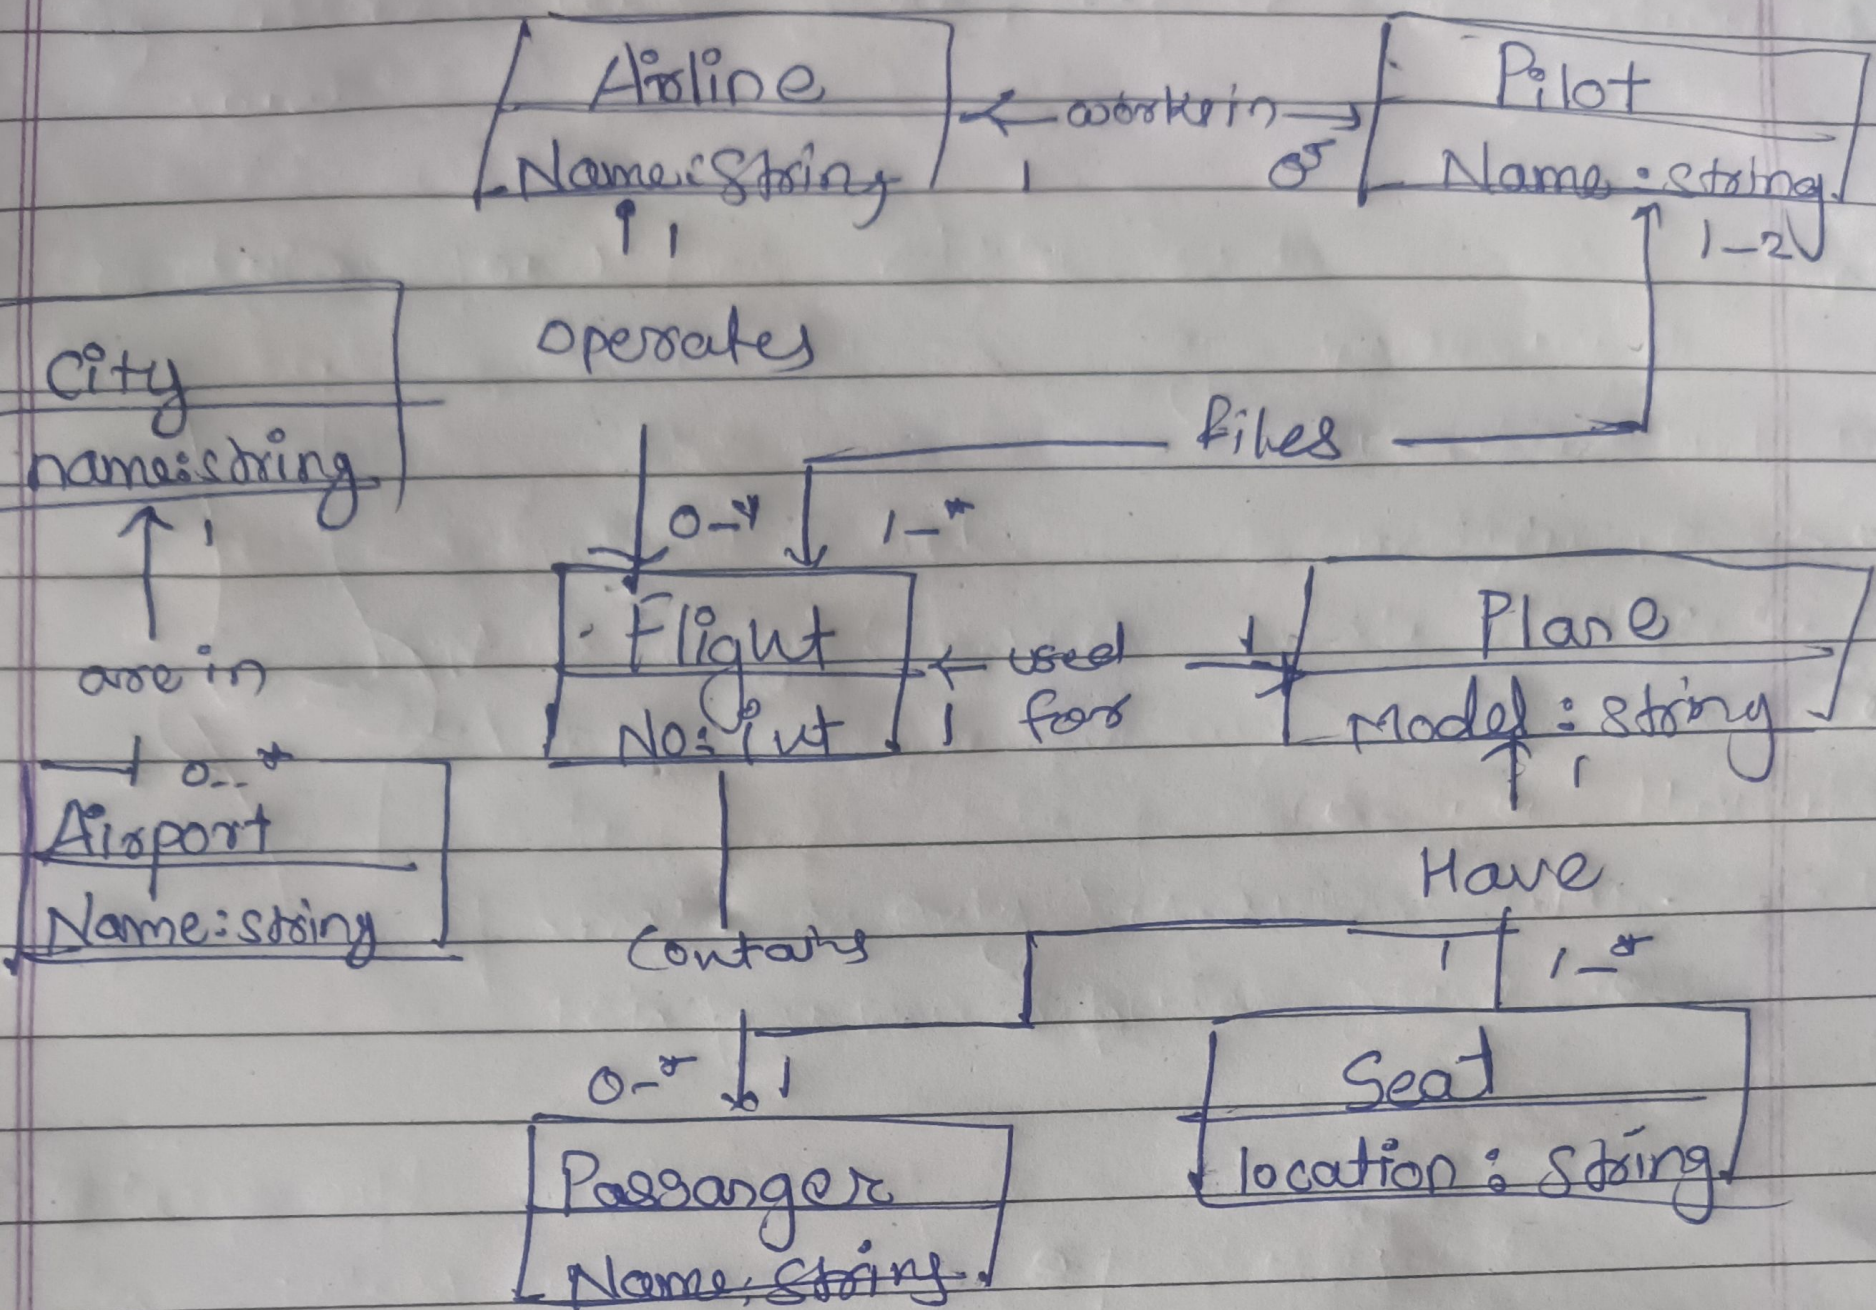 Airline
Name: String
1
← works in →
1
Pilot
Name: string
1-2
City
name: string
1
operates
flies
0-*
1-*
Flight
No: int
1
← used
for
1
Plane
Model: string
1
are in
0..*
Airport
Name: string
Have
Contains
1
1-*
0-*
1
Seat
location: string
Passanger
Name: String